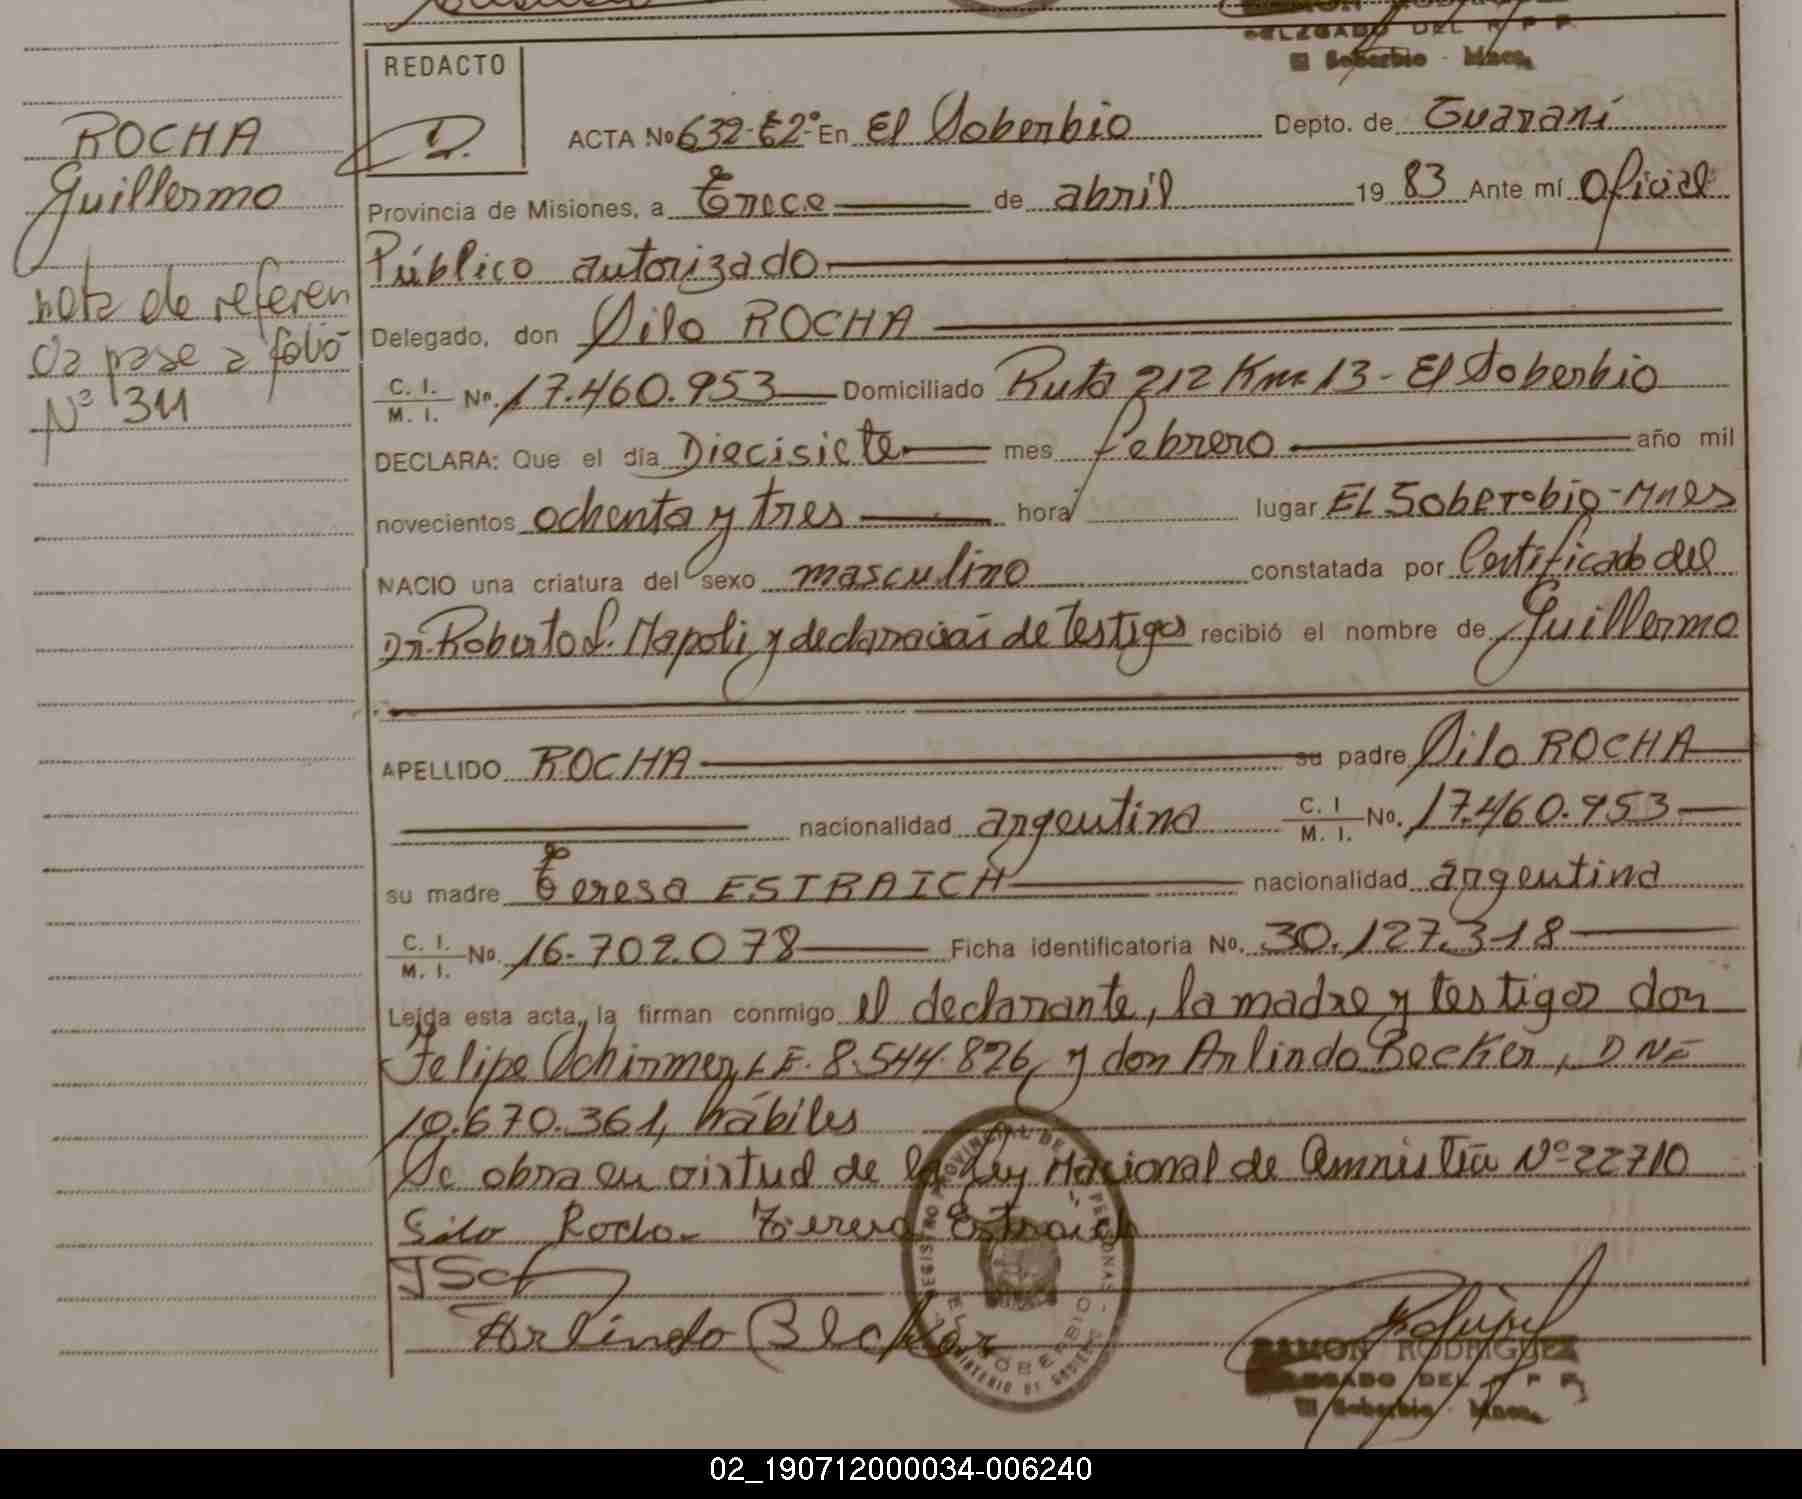 DELEGADO DEL R P P
El Soberbio - Mnes.
REDACTO
ROCHA
Guillermo
nota de referen
cia pase a folio
Nº 311
ACTA Nº 632-T2º- En El Soberbio Depto. de Guaraní
Provincia de Misiones, a Trece de abril 19 83 Ante mí Oficial
Público autorizado
Delegado, don Silo ROCHA
C. I. / M. I. Nº. 17.460.953 Domiciliado Ruta 212 Km 13 - El Soberbio
DECLARA: Que el día Diecisiete mes febrero año mil
novecientos ochenta y tres hora lugar EL Soberbio - Mnes
NACIO una criatura del sexo masculino constatada por Certificado del
Dr. Roberto L. Napoli y declaracias de testigos recibió el nombre de Guillermo
APELLIDO ROCHA su padre Silo ROCHA
nacionalidad argentina C. I / M. I. No. 17.460.953
su madre Teresa ESTRAICH nacionalidad argentina
C. I. / M. I. Nº. 16.702.078 Ficha identificatoria Nº. 30.127.318
Leída esta acta, la firman conmigo el declarante, la madre y testigos don
Felipe Schirmer, L E. 8.544.826, y don Arlindo Becker, DNI
10.670.361, hábiles
Se obra en virtud de la Ley Nacional de Amnistía Nº 22710
Silo Rocha Teresa Estraich
Arlindo Becker
REGISTRO PROVINCIAL DE PERSONAS
EL SOBERBIO
MINISTERIO DE GOBIERNO
RAMON RODRIGUEZ
DELEGADO DEL R P P
El Soberbio - Mnes.
02_190712000034-006240